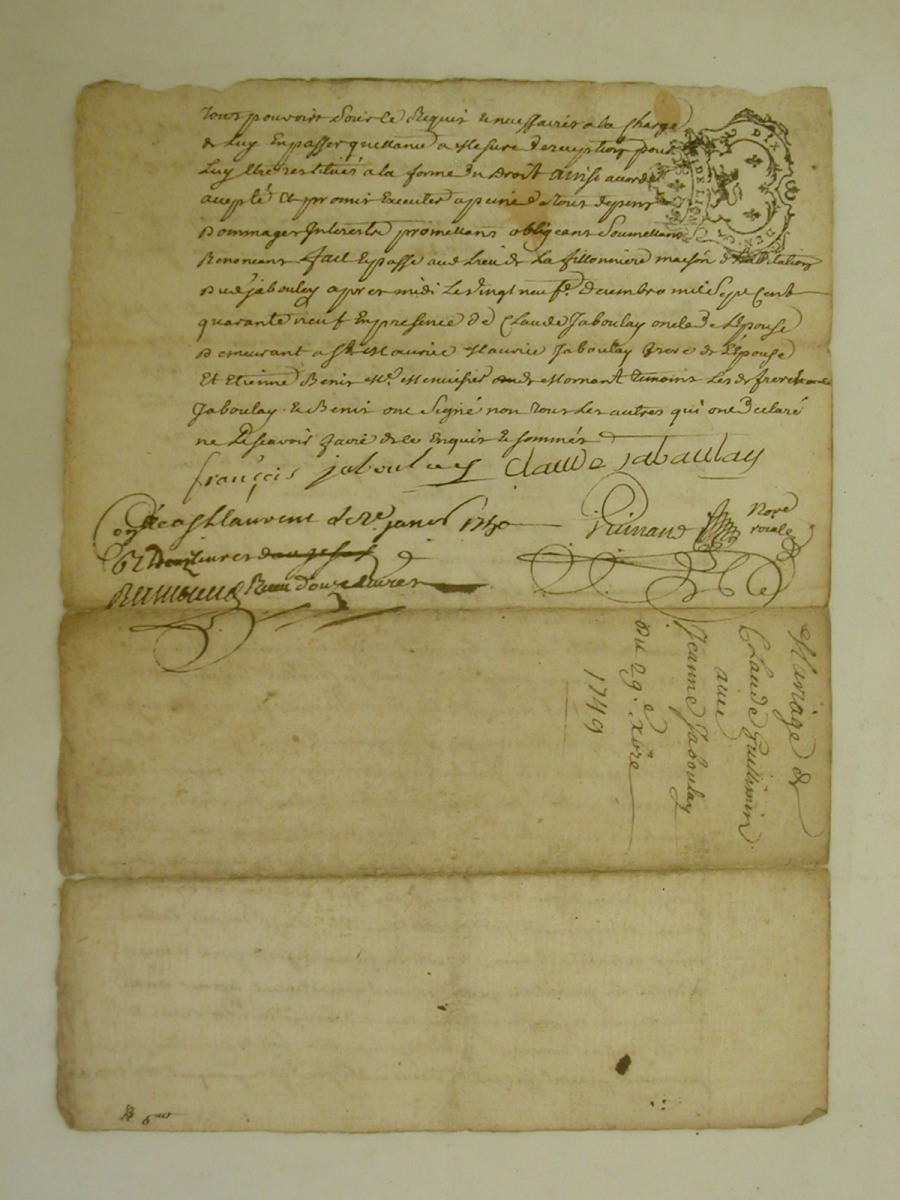 tous pouvoirs Sur ce Requis & necessaires a la Charge
de Luy En passer quittance a Mesure de reception pour
Luy Etre restitués a la forme du Droit ainsi accordé
accepté Et promis Executer a peine de tous depens
Dommages Interests promettans obligeans Soumettans
Renonceans fait & passé au Lieu de La fillonniere maison d'habitation
Dud jaboulay apres midi Le vingt neuf.e Decembre mil Sept Cent
quarante neuf En presence de Claude Jaboulay oncle de L'Epouse
Demeurant a St Maurice Maurice Jaboulay frere de L'Epouse
Et Etienne Benis M.e Menuisier de Mornant temoins Les de
Jaboulay & Benis ont Signé non tous Les autres qui ont declaré
ne Le scavoir faire de ce Enquis & sommés
françois jaboulay Claude Jabaulay
a St Laurent le 2e janv 1750
livres
Recu douze livres
Guinand Nore royal
DIX DEN
DE LION
Mariage de
Claude Guillimin
avec
Jeanne Jaboulay
du 29.e Xbre
1749